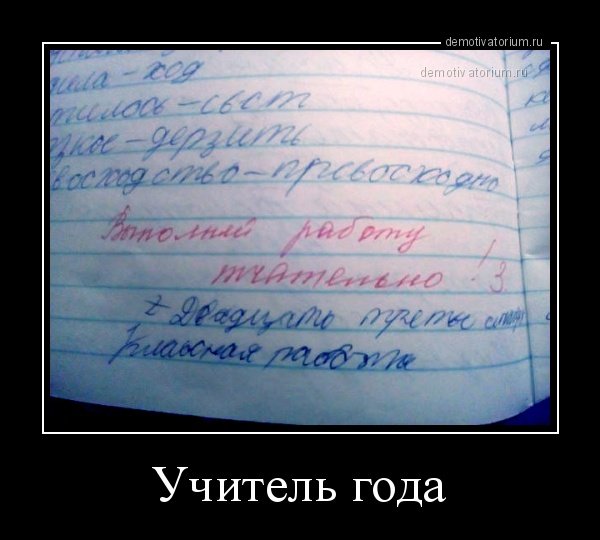 demotivatorium.ru
demotivatorium.ru
ход
свет
дерзить
восходство - превосходно
Выполняй работу
тчательно! 3
Двадцать третье
Классная работа
Учитель года